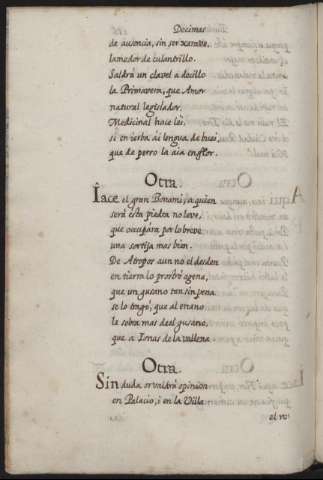 Decimas
de ausencia, sin ser xaraue,
lamedor de culantrillo.
Saldrá un clavel a decillo
la Primavera, que Amor
natural legislador,
Medicinal hace lei,
si en ierba ai lengua de buei,
que de perro la aia en flor.
Otra.
Iace el gran Bonami, a quien
será esta piedra no leve,
que ocupára por lo breve
una sortija mas bien.
De Atropos aun no el desden
en tierra lo prostró agena,
que un gusano tan sin pena
se lo tragó, que al enano
le sobra mas de el gusano,
que a Jonas de la vallena.
Otra.
Sin duda os valdrá opinion
en Palacio, i en la Villa
el ro-